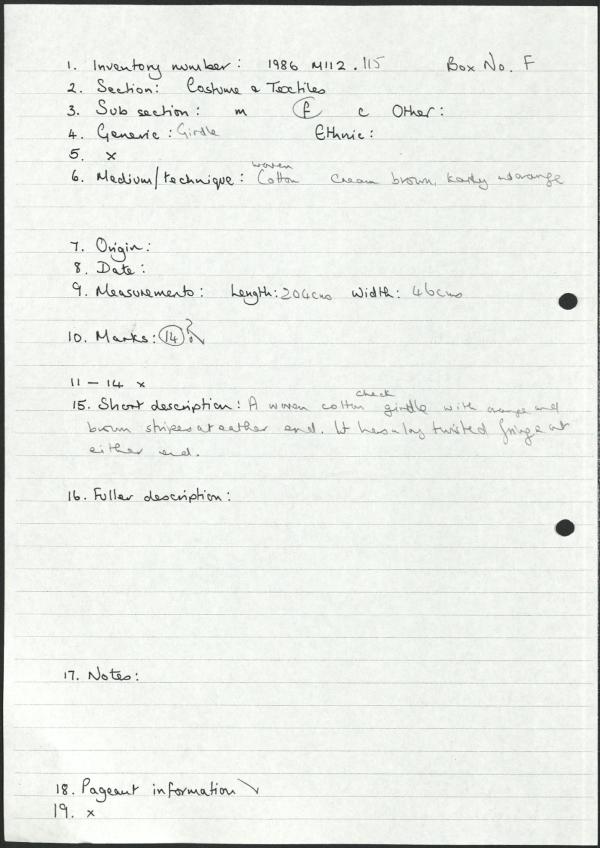 1. Inventory number: 1986 M112.115 Box No. F
2. Section: Costume & Textiles
3. Sub section: m f c Other:
4. Generic: Girdle Ethnic:
5. x
woven
6. Medium/technique: Cotton Cream brown,
7. Origin:
8. Date:
9. Measurements: Length: 204cms Width: 46cms
10. Marks: 14 ?
11 – 14 x
check
15. Short description: A woven cotton girdle with orange and
brown stripes at eather end. It has a long twisted fringe at
either end.
16. Fuller description:
17. Notes:
18. Pageant information
19. x